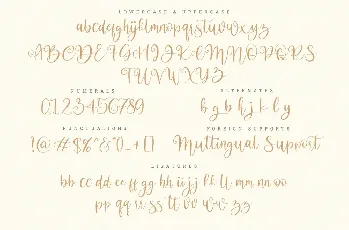 LOWERCASE & UPPERCASE
abcdefghijklmnopqrstuvwxyz
ABCDEFGHIJKLMNOPQRS
TUVWXYZ
NUMERALS
0123456789
ALTERNATES
b g h h j k l y
PUNCTUATIONS
!?@:#$%^&*()_+[]
FOREIGN SUPPORTS
Multingual Support
LIGATURES
bb cc dd ee ff gg hh ii jj kk ll mm nn oo
pp qq rr ss tt vv ww zz